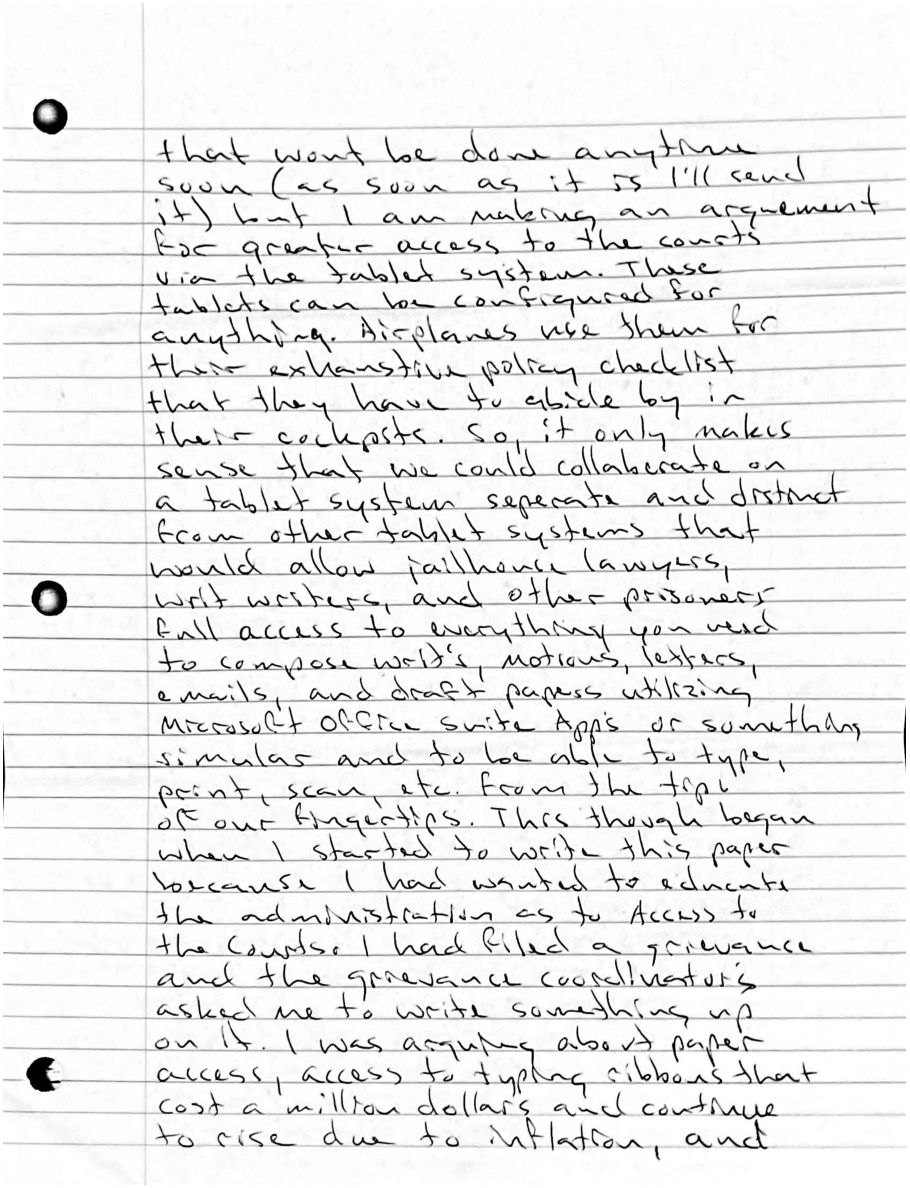 that wont be done anytime
soon (as soon as it is I'll send
it) but I am making an arguement
for greater access to the courts
via the tablet system. These
tablets can be configured for
anything. Airplanes use them for
their exhaustive policy checklist
that they have to abide by in
their cockpits. So, it only makes
sense that we could collaberate on
a tablet system seperate and distinct
from other tablet systems that
would allow jailhouse lawyers,
writ writers, and other prisoners
full access to everything you need
to compose writ's, motions, letters,
emails, and draft papers utilizing
Microsoft Office suite App's or something
simular and to be able to type,
print, scan, etc. from the tips
of our fingertips. This though began
when I started to write this paper
because I had wanted to educate
the administration as to Access to
the Courts. I had filed a grievance
and the grievance coordinator's
asked me to write something up
on it. I was arguing about paper
access, access to typing ribbons that
cost a million dollars and continue
to rise due to inflation, and